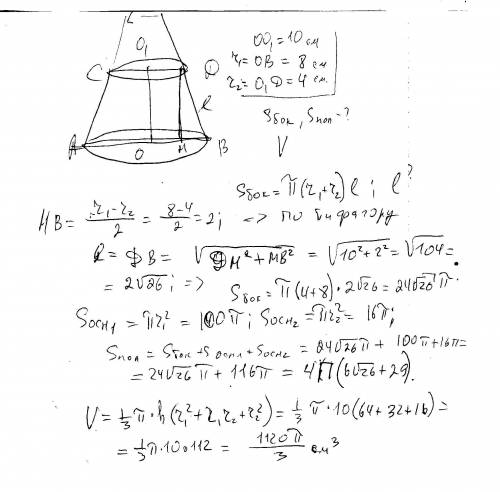 O₁
C D
l
A O M B
OO₁ = 10 см
r₁ = OB = 8 см
r₂ = O₁D = 4 см.
Sбок, Sпол - ?
V
Sбок = π(r₁+r₂)l ; l - ?
MB = (r₁-r₂)/2 = (8-4)/2 = 2; => по Пифагору
l = DB = √(DM²+MB²) = √(10²+2²) = √104 =
= 2√26 ; => Sбок = π(4+8)·2√26 = 24√26 π
Sосн₁ = πr₁² = 100π; Sосн₂ = πr₂² = 16π;
Sпол = Sбок + Sосн₁ + Sосн₂ = 24√26 π + 100π + 16π =
= 24√26 π + 116π = 4π(6√26 + 29).
V = 1/3 π·h(r₁² + r₁r₂ + r₂²) = 1/3 π·10(64+32+16) =
= 1/3 π·10·112 = 1120π/3 см³